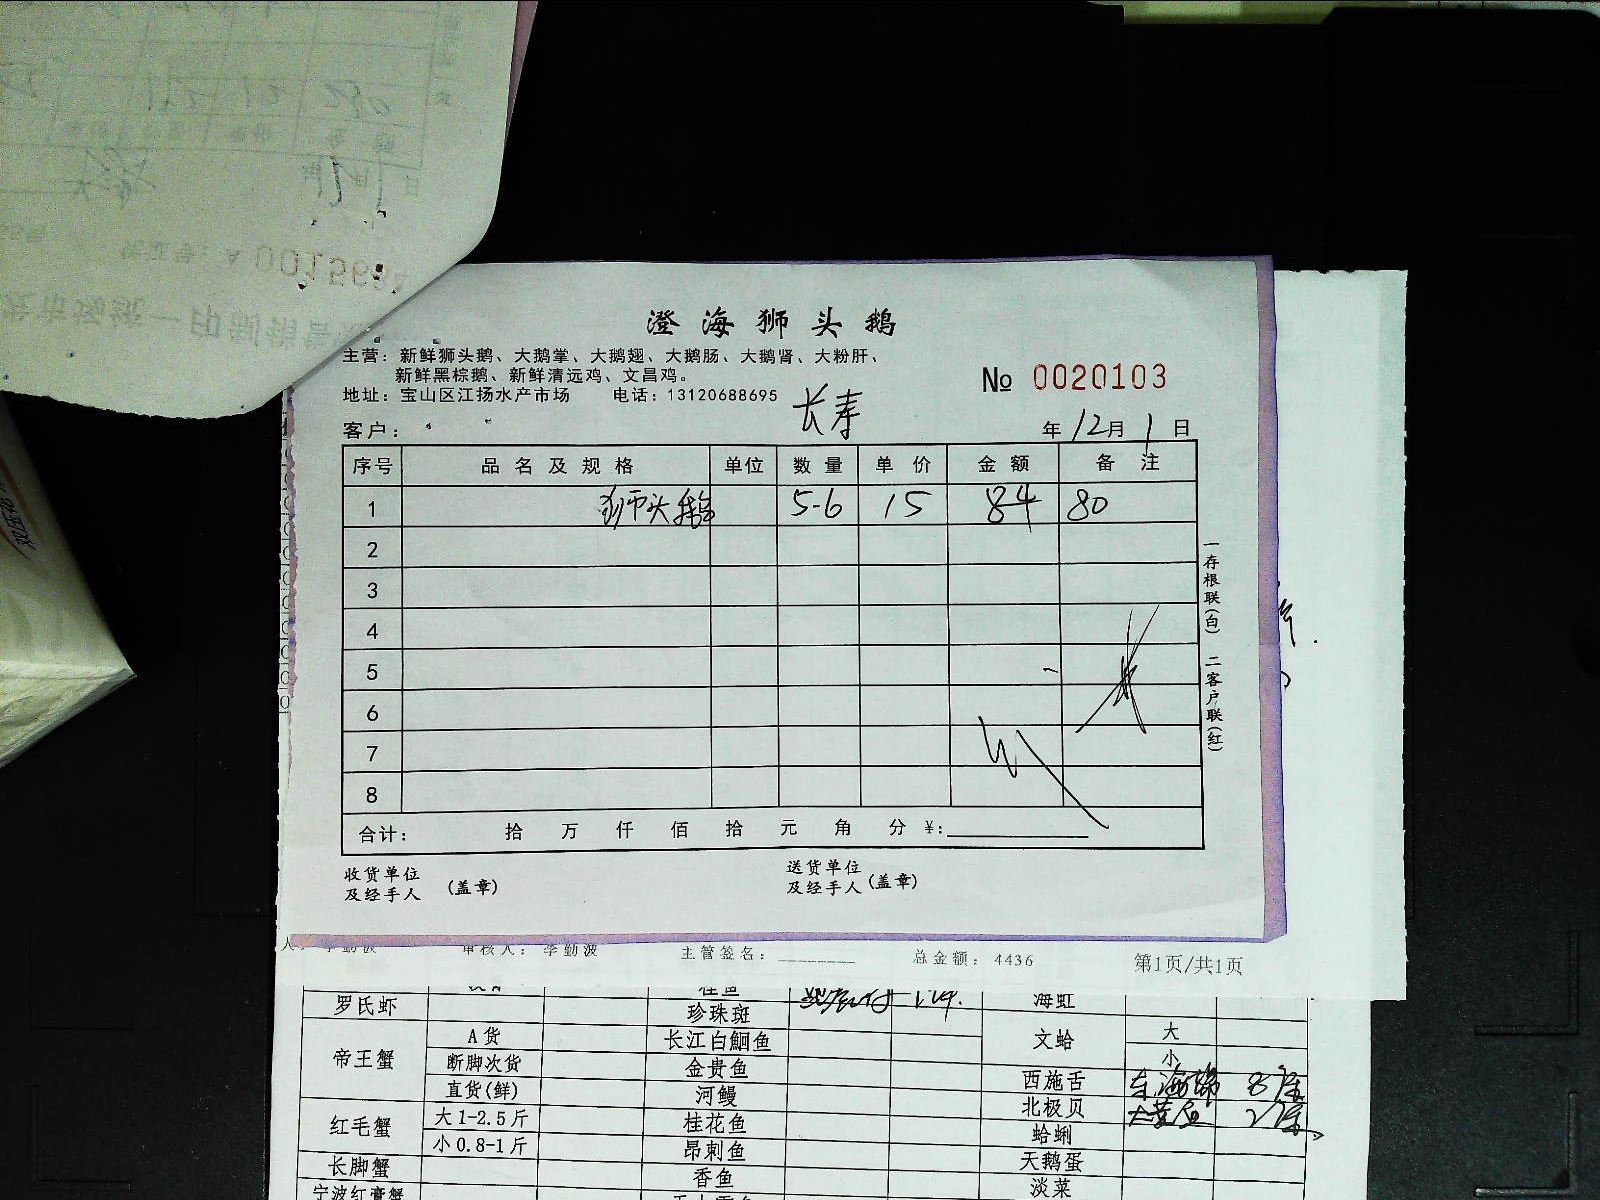 澄海狮头鹅
主营：新鲜狮头鹅、大鹅掌、大鹅翅、大鹅肠、大鹅肾、大粉肝、
新鲜黑棕鹅、新鲜清远鸡、文昌鸡。
地址：宝山区江扬水产市场 电话：13120688695
№ 0020103
长寿
客户： 年 12月 1日
序号 品名及规格 单位 数量 单价 金额 备注
1 狮头鹅 5-6 15 84 80
2
3
4
5
6
7
8
合计： 拾 万 仟 佰 拾 元 角 分 ¥:
一存根联(白) 二客户联(红)
收货单位 送货单位
及经手人 (盖章) 及经手人 (盖章)
审核人：李勤波 主管签名： 总金额：4436 第1页/共1页
罗氏虾 桂鱼 海虹
珍珠斑
帝王蟹 A货 长江白鮰鱼 文蛤 大
断脚次货 金贵鱼 小
直货(鲜) 河鳗 西施舌
红毛蟹 大1-2.5斤 桂花鱼 北极贝
小0.8-1斤 昂刺鱼 蛤蜊
长脚蟹 香鱼 天鹅蛋
宁波红膏蟹 淡菜